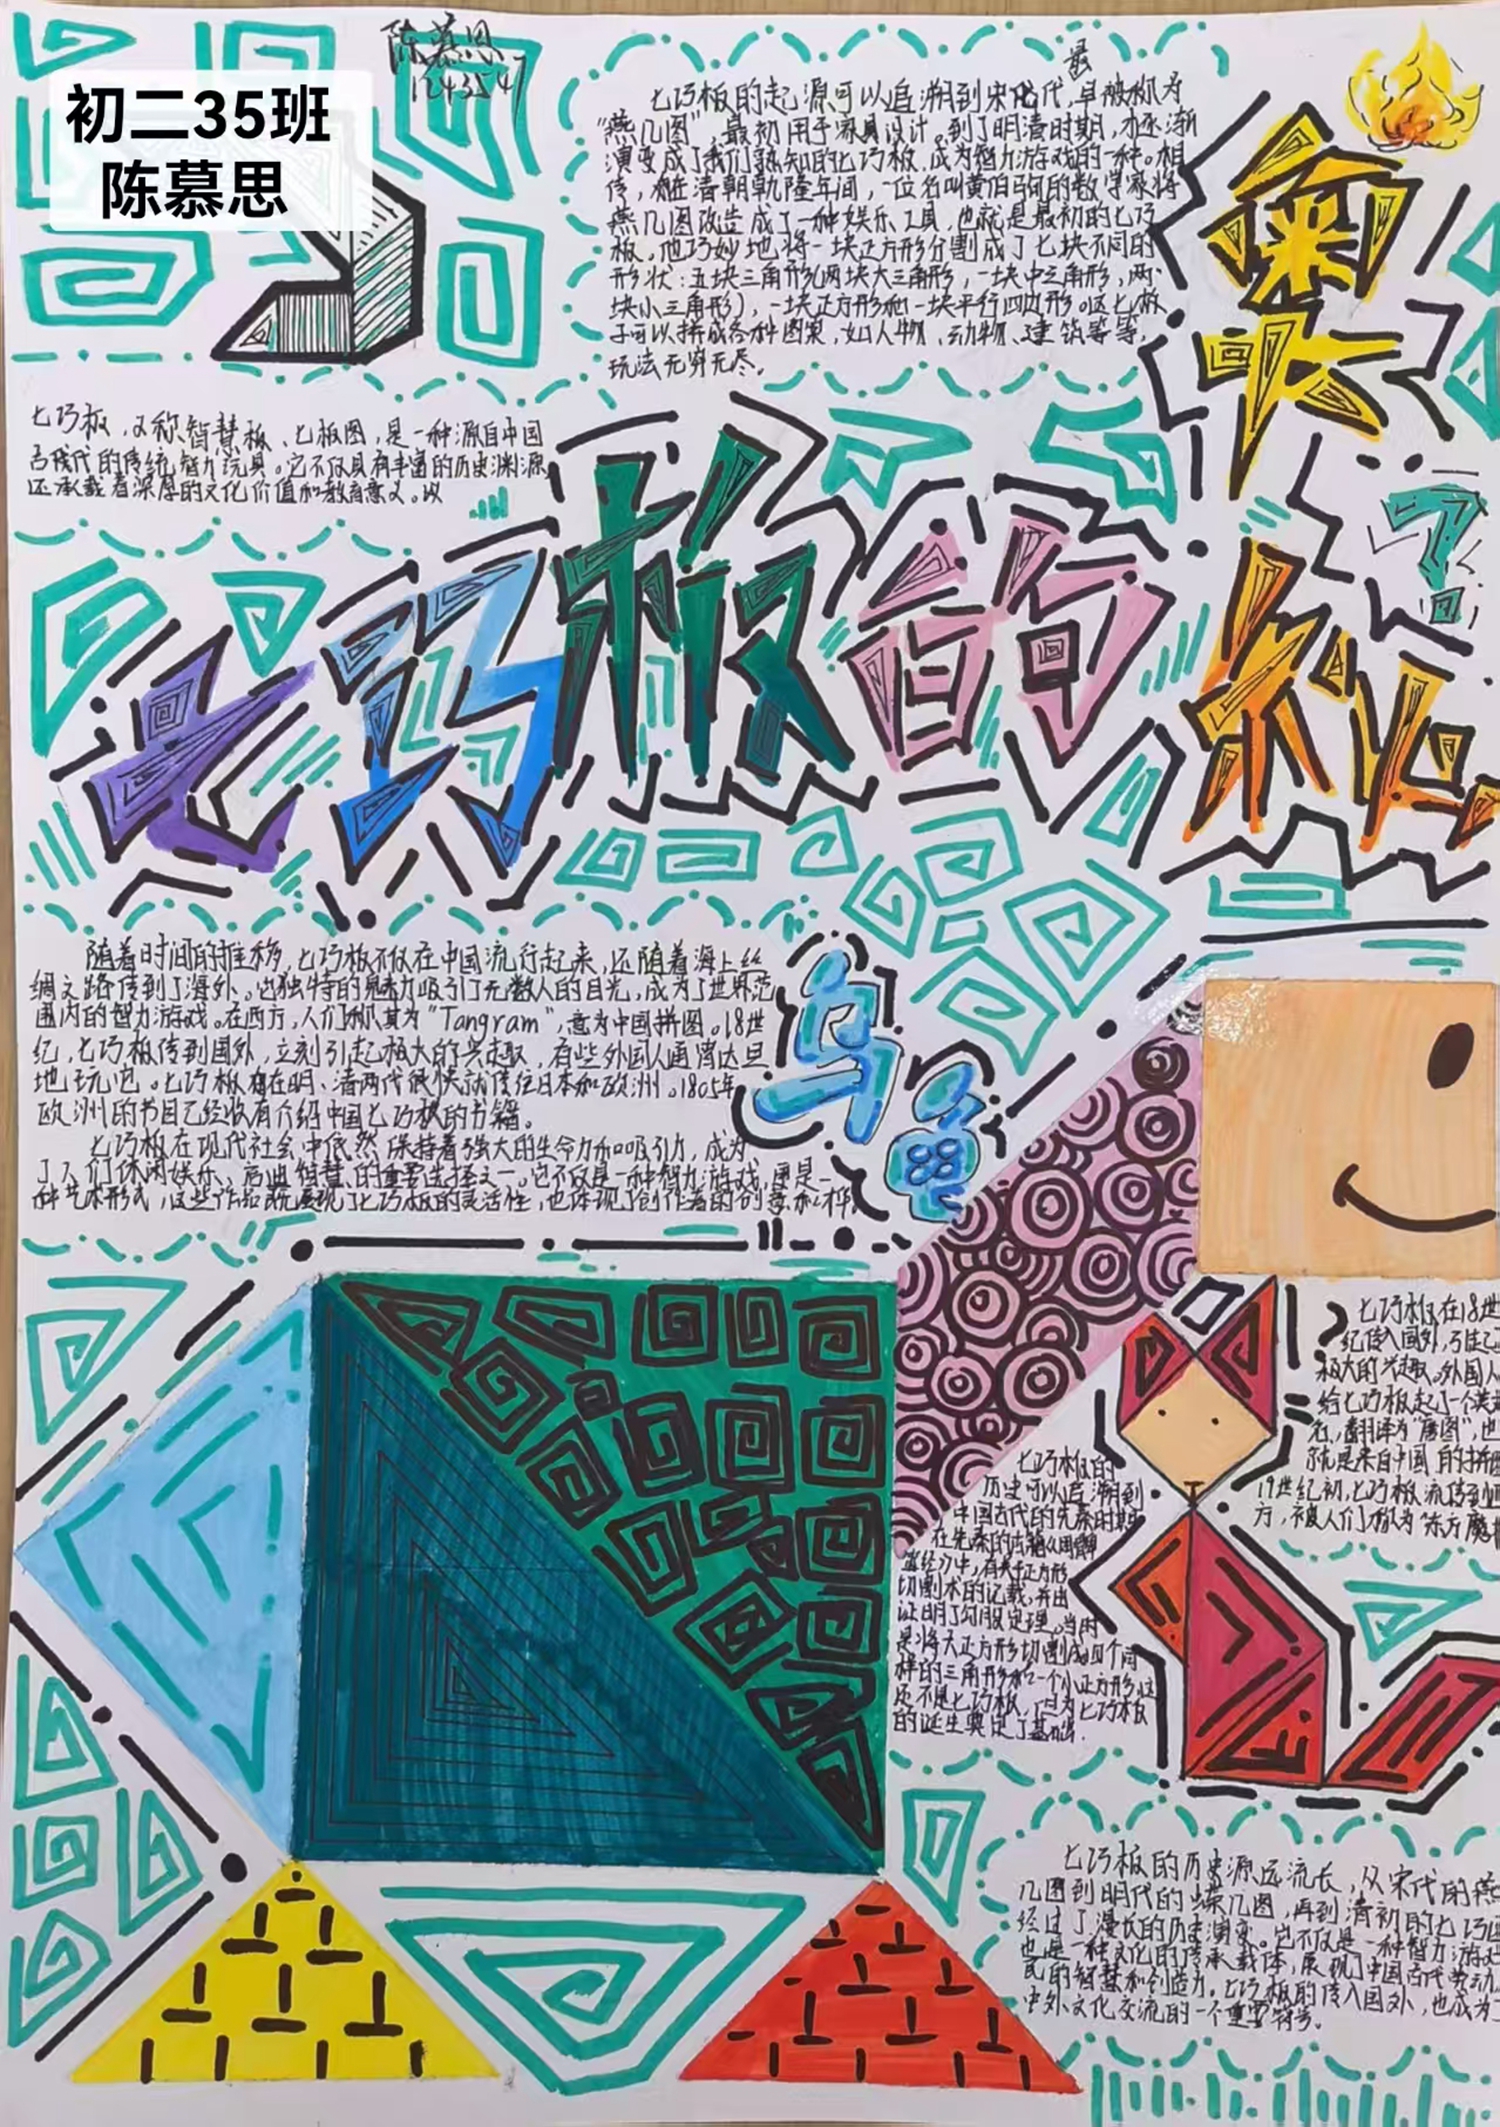 陈慕思
1243547
初二35班
陈慕思
最
七巧板的起源可以追溯到宋代,早被称为
“燕几图”,最初用于家具设计。到了明清时期,逐渐
演变成了我们熟知的七巧板,成为智力游戏的一种。相
传,在清朝乾隆年间,一位名叫黄伯的数学家将
燕几图改造成了一种娱乐工具,也就是最初的七巧
板,他巧妙地将一块正方形分割成了七块不同的
形状:五块三角形(两块大三角形,一块中三角形,两
块小三角形),一块正方形和一块平行四边形。这七板
子可以拼成各种图案,如人物、动物、建筑等等,
玩法无穷无尽。
奥
七巧板,又称智慧板、七板图,是一种源自中国
古代的传统智力玩具。它不仅具有丰富的历史渊源,
还承载着深厚的文化价值和教育意义。以
?
七巧板的秘
随着时间的推移,七巧板不仅在中国流行起来,还随着海上丝
绸之路传到了海外。它独特的魅力吸引了无数人的目光,成为了世界范
围内的智力游戏。在西方,人们称其为“Tangram”,意为中国拼图。18世
纪,七巧板传到国外,立刻引起极大的兴趣,有些外国人通宵达旦
地玩它。七巧板在明、清两代很快就传往日本和欧洲。1805年
欧洲的书目已经收有介绍中国七巧板的书籍。
七巧板在现代社会中依然保持着强大的生命力和吸引力,成为
了人们休闲娱乐、启迪智慧的重要选择之一。它不仅是一种智力游戏,更是一
种艺术形式,这些作品既展现了七巧板的灵活性,也体现了创作者的创意和
七巧板在18世
纪传入国外,引起
极大的兴趣。外国人
给七巧板起了一个英
名,翻译为“唐图”,也
就是来自中国的拼
19世纪初,七巧板流传到西
方,被人们称为“东方魔
七巧板的
历史可以追溯到
中国古代的先秦时期
在先秦的古籍《周髀
算经》中,有关于正方形
切割术的记载,并由
证明了勾股定理。当时
是将大正方形切割成四个同
样的三角形和一个小正方形,这
还不是七巧板,但为七巧板
的诞生奠定了基础。
七巧板的历史源远流长,从宋代的燕
几图到明代的蝶几图,再到清初的七巧
经过了漫长的历史演变。它不仅是一种智力游戏
也是一种文化的传承载体,展现了中国古代劳动
民的智慧和创造力。七巧板的传入国外,也成为了
中外文化交流的一个重要符号。